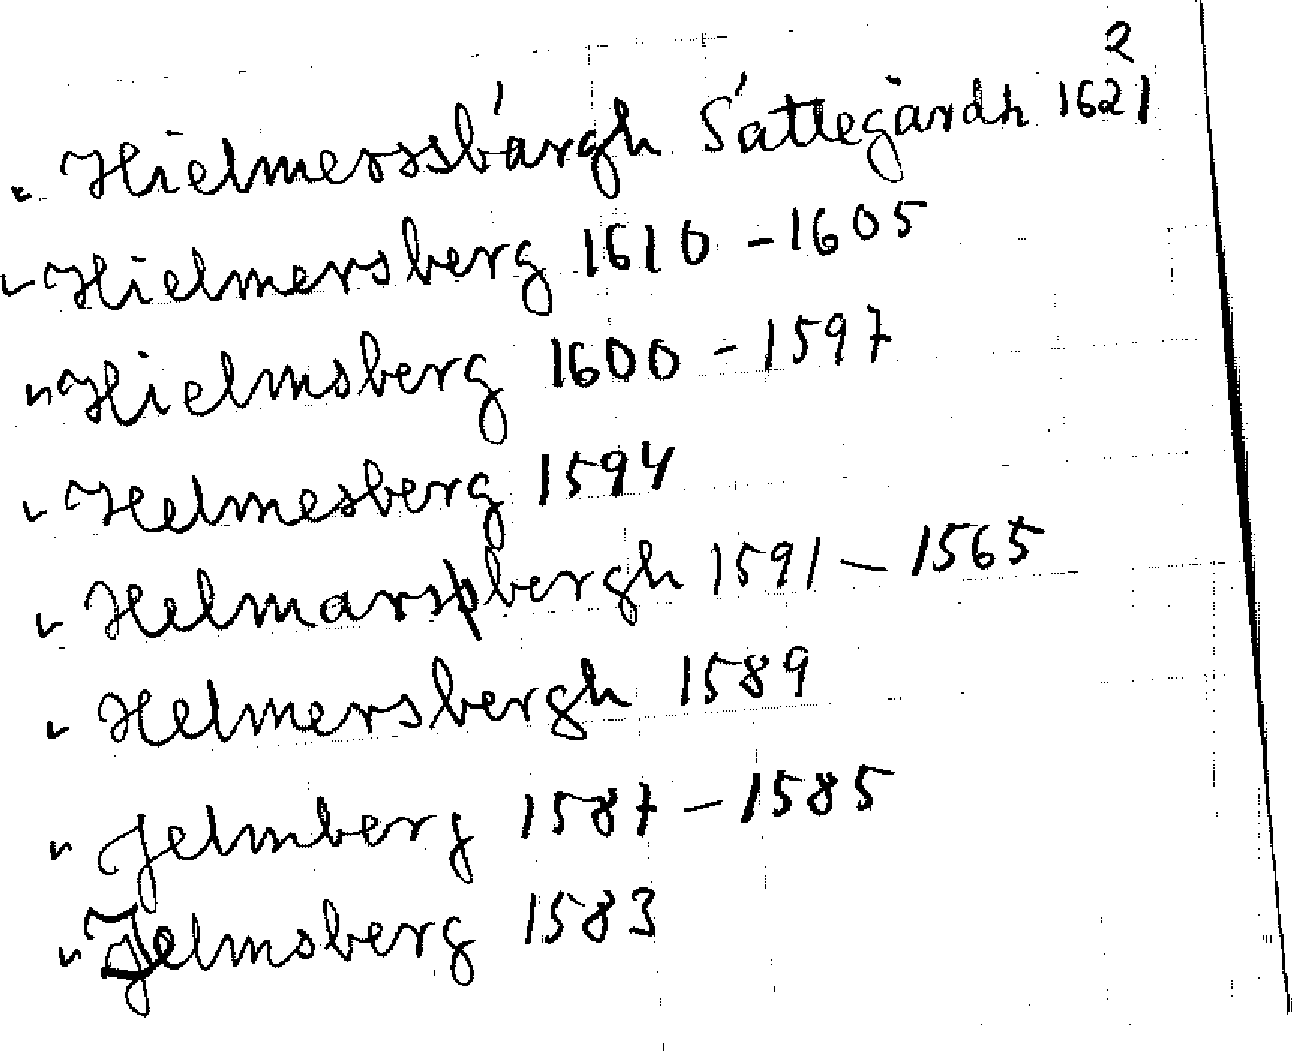 2
" Hielmerssbärgh Sättegårdh 1621
" Hielmersberg 1610 - 1605
" Hielmsberg 1600 - 1597
" Helmesberg 1594
" Helmarspbergh 1591 - 1565
" Helmersbergh 1589
" Jelmberg 1587 - 1585
" Jelmsberg 1583